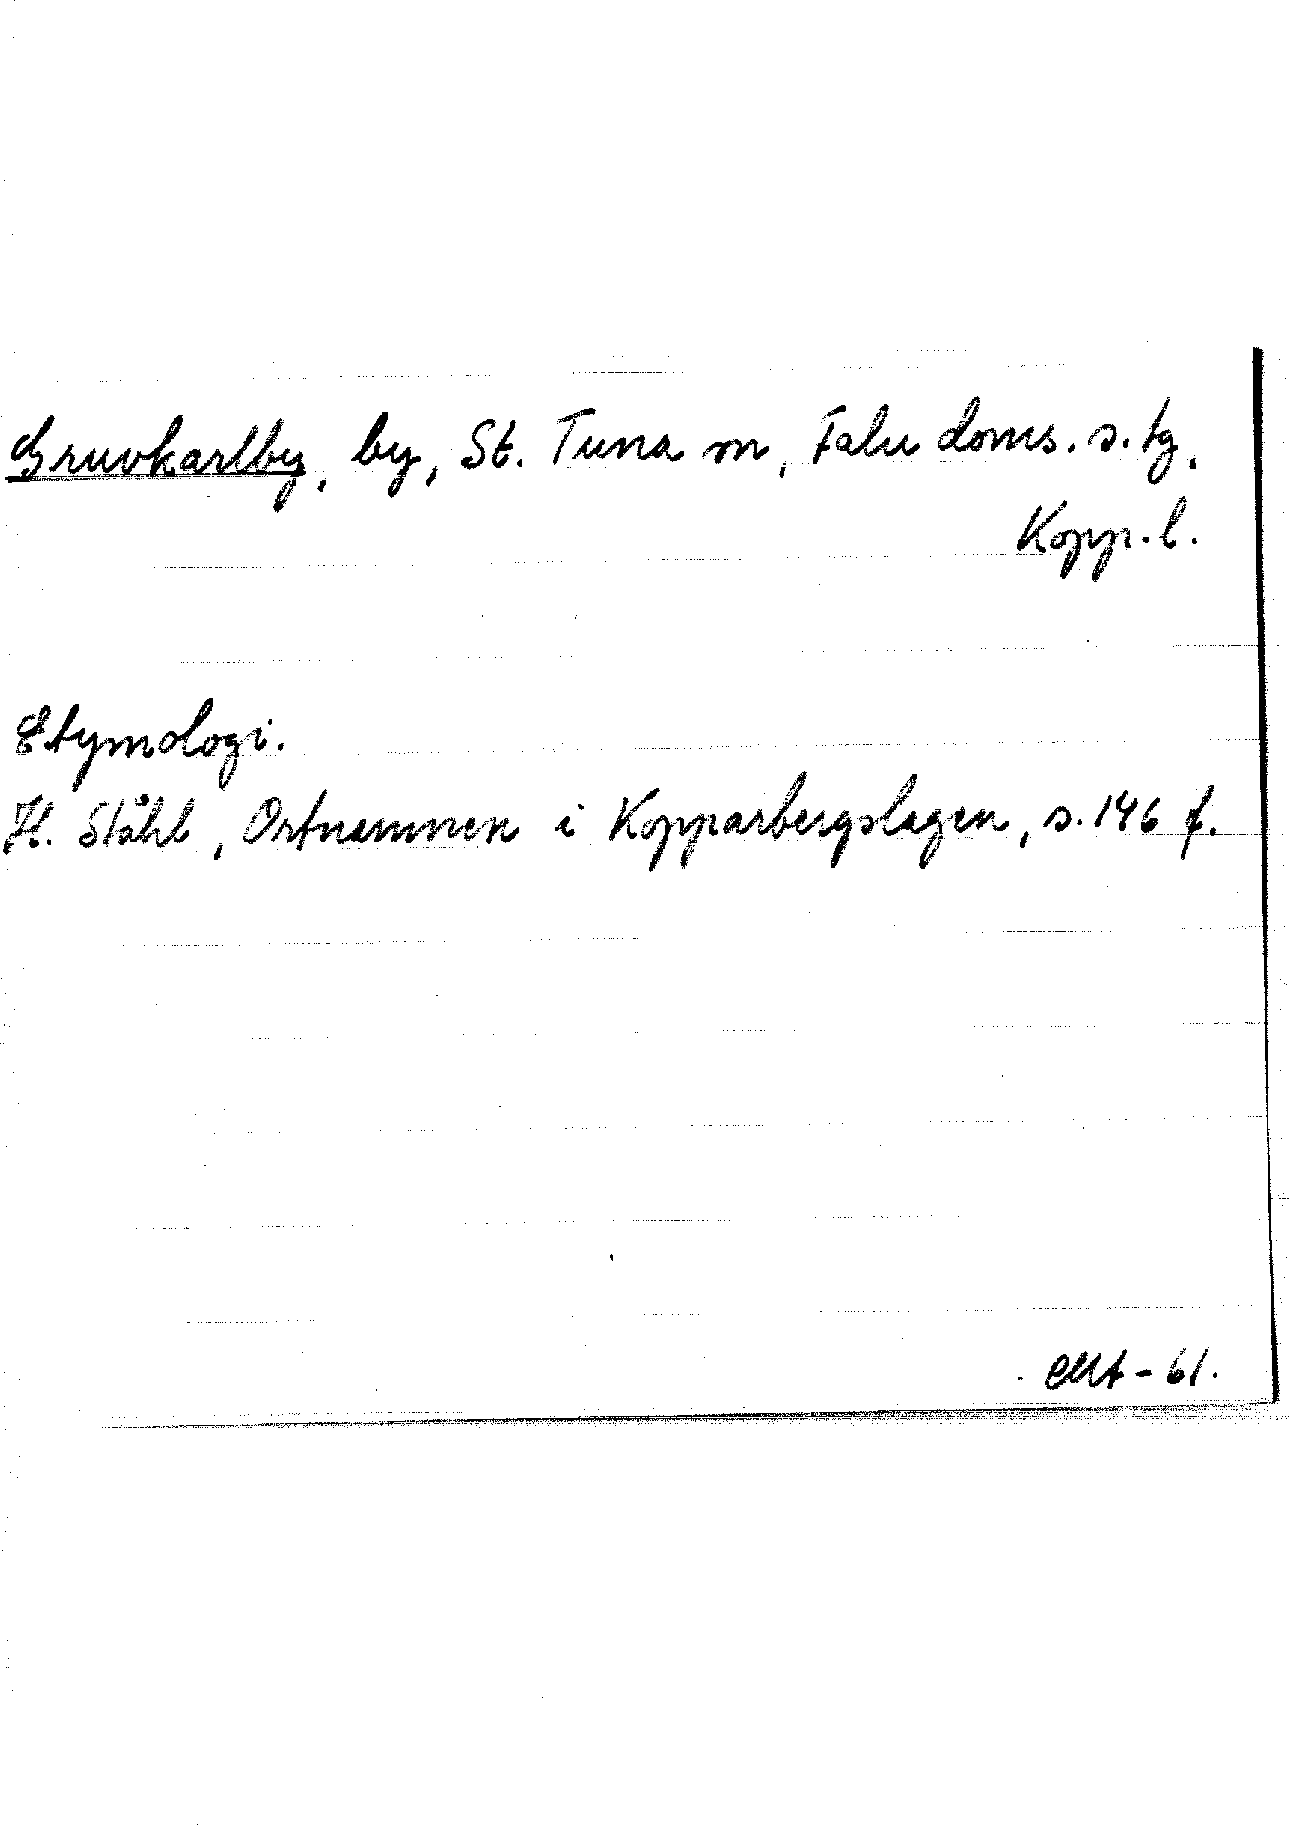 Gruvkarlby, by, St. Tuna sn, Falu doms. s. tg,
Kopp. l.
Etymologi.
H. Ståhl, Ortnamnen i Kopparbergslagen, s. 146 f.
EMT - 61.